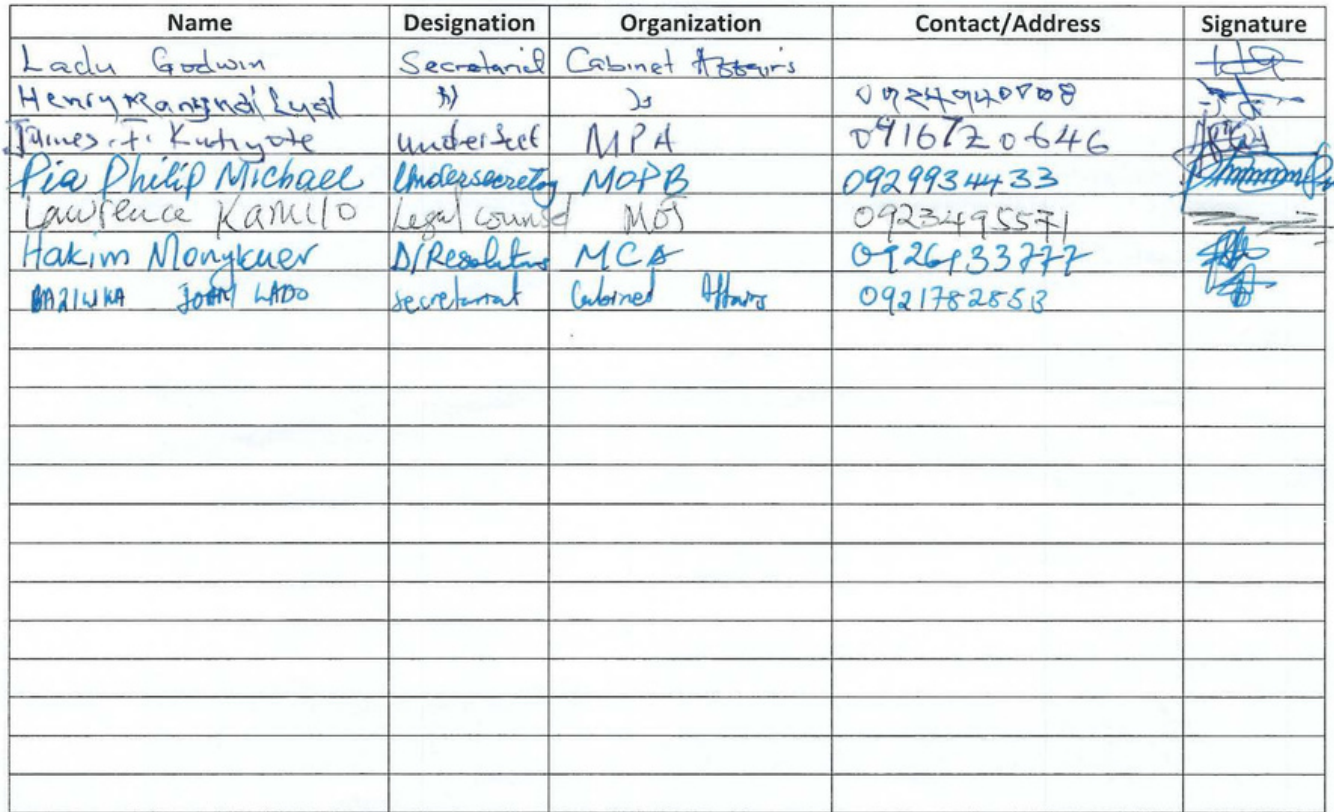 Name Designation Organization Contact/Address Signature
Ladu Godwin Secretariel Cabinet Affairs
Henry 〃 〃 0924940708
James .F. Undersect MPA 0916720646
Pia Philip Michael Undersecretary MOPB 0929934433
Lawrence Kamilo Legal counsel MOJ 0923495571
Hakim Monykuer D/Resolutions MCA 0926933777
LADO secretariat Cabinet Affairs